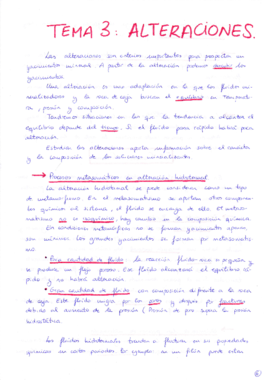 TEMA 3: ALTERACIONES.
Las alteraciones son criterios importantes para prospectar un
yacimiento mineral. A partir de la alteración podemos
yacimiento.
Una alteración es una adaptación en la que los fluidos mi-
neralizadores y la roca de caja buscan el equilibrio en temperatu-
ra, presión y composición.
Tendremos alteraciones en las que la tendencia a
equilibrio depende del tiempo. Si el fluido pasa rápido habrá poca
alteración.
Estudiar las alteraciones aporta información sobre el carácter
y la composición de las soluciones mineralizantes.
Procesos metasomáticos en alteración hidrotermal
La alteración hidrotermal se puede considerar como un tipo
de metamorfismo. En el metasomatismo se aportan otros componen-
tes químicos al sistema, el fluido se encarga de ello. El meta-
morfismo no es isoquímico, hay cambios en la composición química.
En condiciones metamórficas no se forman yacimientos
son mínimos. Los grandes yacimientos se forman por metasomatis-
mo.
• Poca cantidad de fluido: la reacción fluido-roca es pequeña y
se produce un flujo. Ese fluido alcanzará el equilibrio rá-
pido y no habrá alteración.
• Gran cantidad de fluido con composición diferente a la roca
de caja. Este fluido migra por los poros y después por fracturas
debido al aumento de la presión (Presión de poro supera la presión
hidrostática).
Los fluidos hidrotermales tienden a fluctuar en sus propiedades
químicas